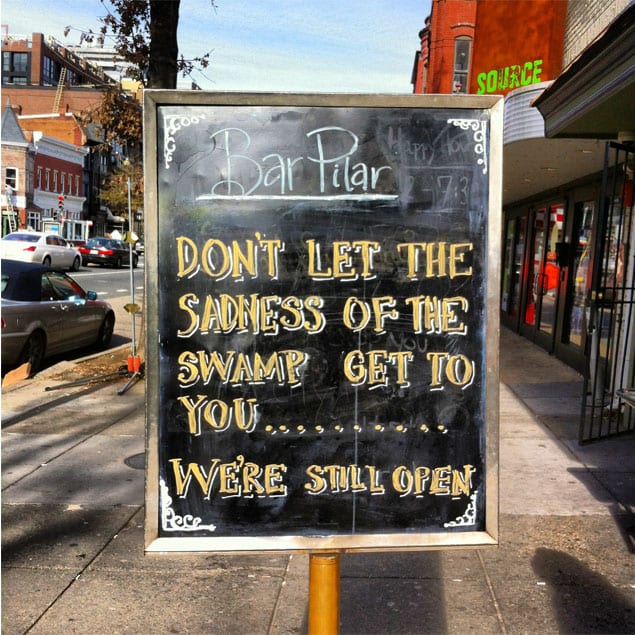 SOURCE
Bar Pilar
DON'T LET THE
SADNESS OF THE
SWAMP GET TO
YOU...........
WE'RE STILL OPEN